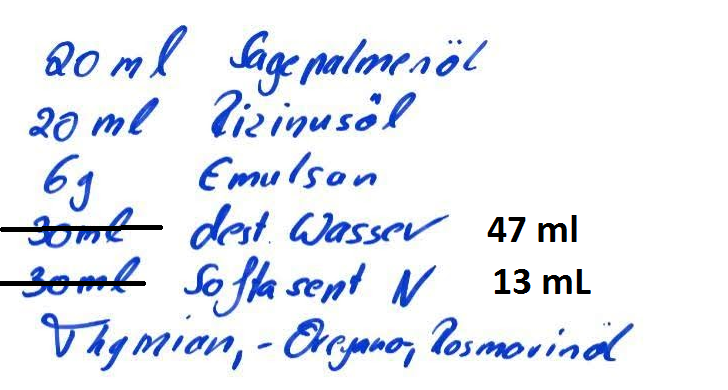 20 ml Sägepalmenöl
20 ml Rizinusöl
6g Emulsan
30ml dest. Wasser 47 ml
30ml Softasept N 13 mL
Thymian,- Oregano-, Rosmarinöl